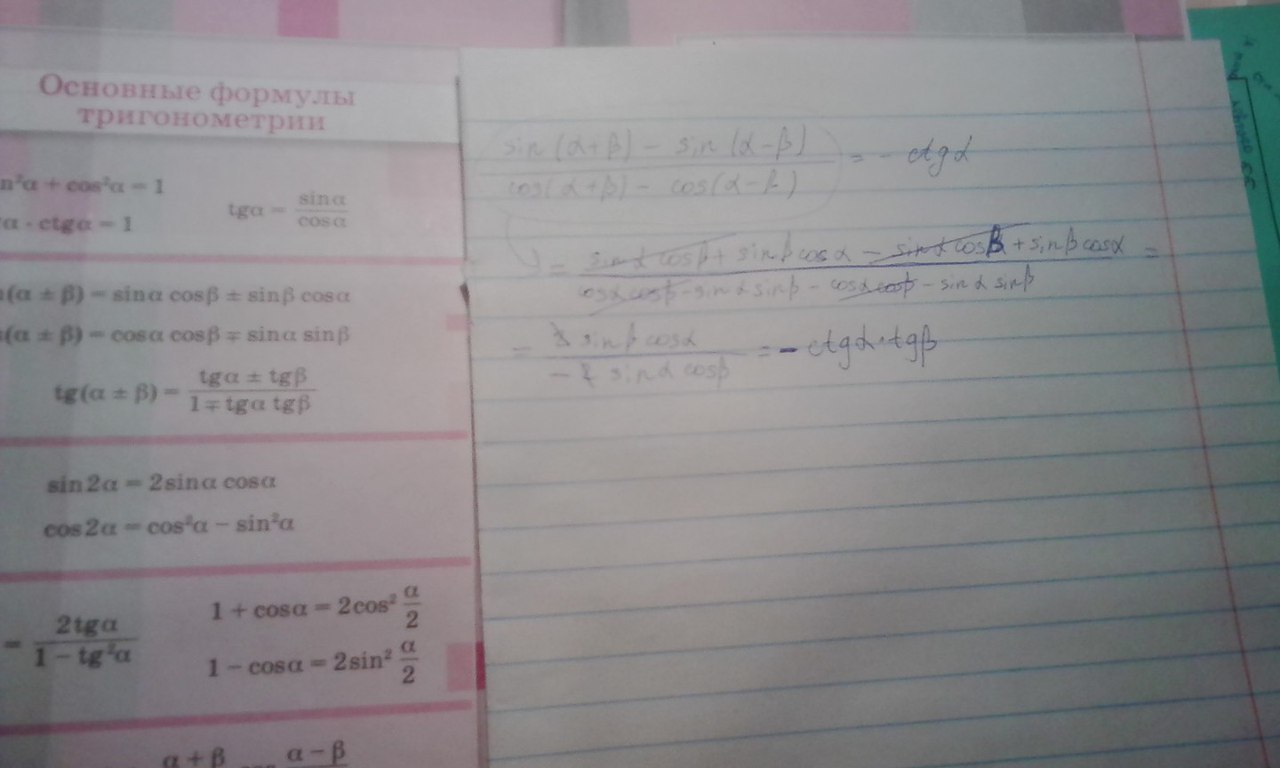 Основные формулы
тригонометрии
n²α + cos²α = 1
α · ctgα = 1
tgα = sinα / cosα
(α ± β) = sinα cosβ ± sinβ cosα
(α ± β) = cosα cosβ ∓ sinα sinβ
tg(α ± β) = tgα ± tgβ / 1 ∓ tgα tgβ
sin 2α = 2sinα cosα
cos 2α = cos²α − sin²α
= 2tgα / 1 − tg²α
1 + cosα = 2cos² α/2
1 − cosα = 2sin² α/2
α + β α − β
sin(α+β) − sin(α−β) / cos(α+β) − cos(α−β) = − ctgα
= sinα cosβ + sinβ cosα − sinα cosβ + sinβ cosα / cosα cosβ − sinα sinβ − cosα cosβ − sinα sinβ =
= 2 sinβ cosα / −2 sinα cosβ = − ctgα · tgβ